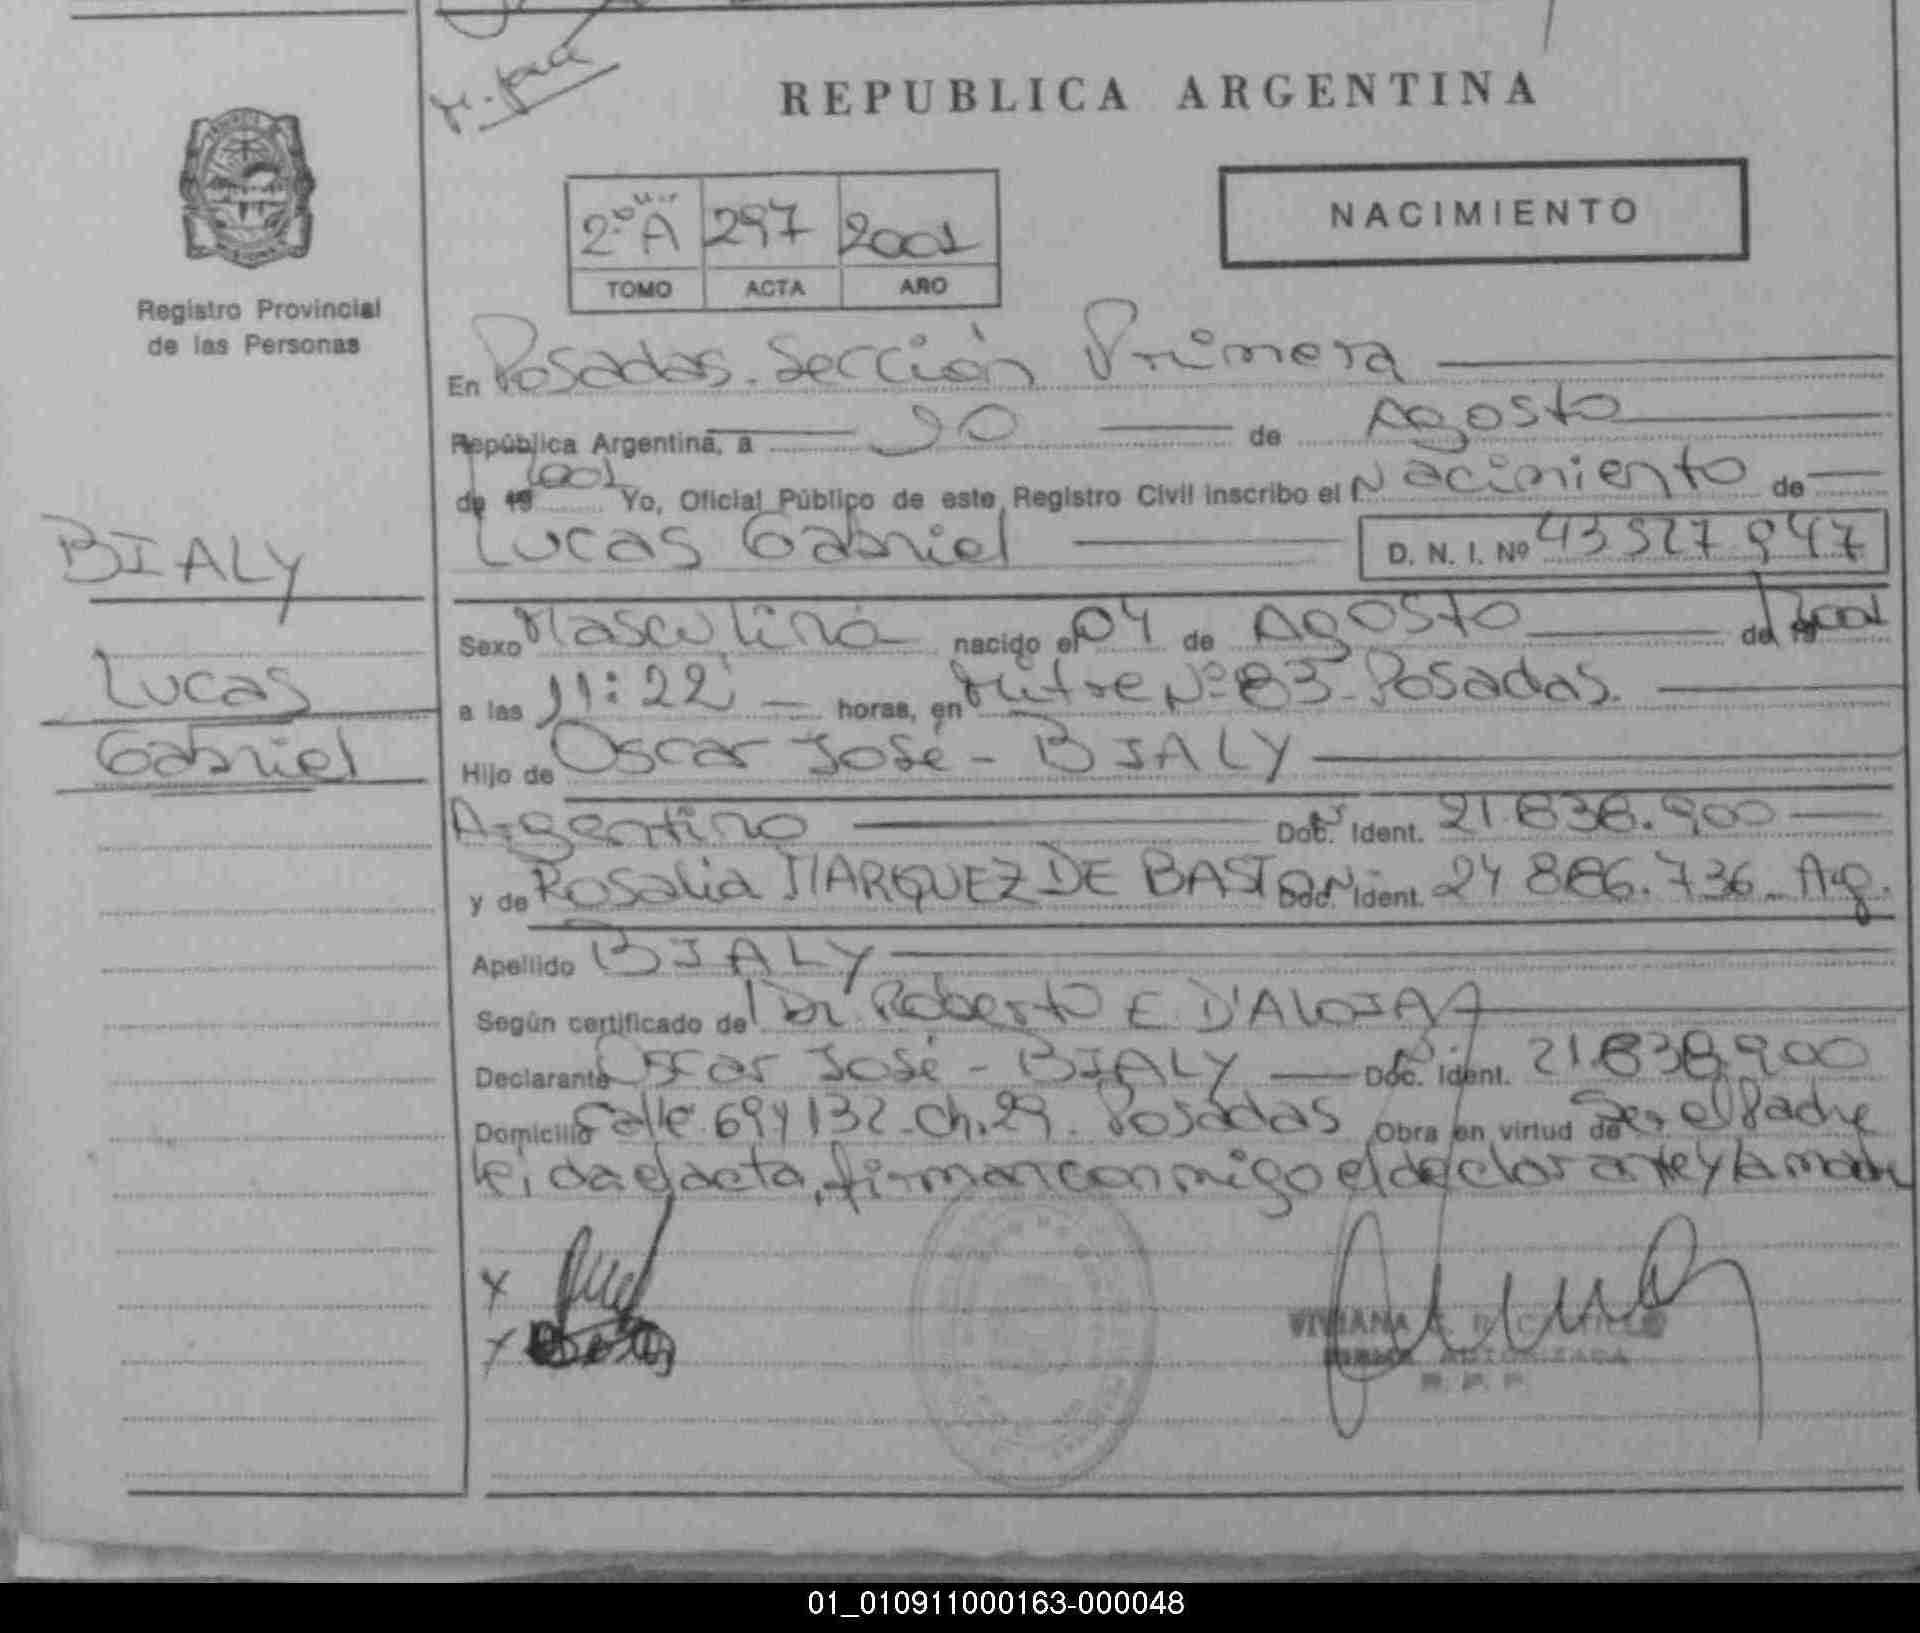 REPUBLICA ARGENTINA
NACIMIENTO
2º A 297 2001
TOMO ACTA AÑO
Registro Provincial
de las Personas
En Posadas. Sección Primera
República Argentina, a de Agosto
de 19 2001 Yo, Oficial Público de este Registro Civil inscribo el Nacimiento de
Lucas Gabriel D. N. I. Nº
BIALY
Lucas
Gabriel
Sexo Masculino nacido el 04 de Agosto de 19 2001
a las 11:22 horas, en Mitre Nº 83 - Posadas.
Hijo de Oscar José - BIALY
Argentino Doc. Ident. 21.838.900
y de Rosalia MARQUEZ DE BASTO Doc. Ident. 24 886.736 Arg.
Apellido BIALY
Según certificado del Dr. Roberto E. D'ALOIA
Declarante Oscar José - BIALY Doc. Ident. 21.838.900
Domicilio Calle 69 y 132 - Ch. 29 - Posadas Obra en virtud de Ser el Padre
leida el acta, firman conmigo el declarante y la madre
x
x
VIVIANA
FIRMA AUTORIZADA
R. P. P.
01_010911000163-000048